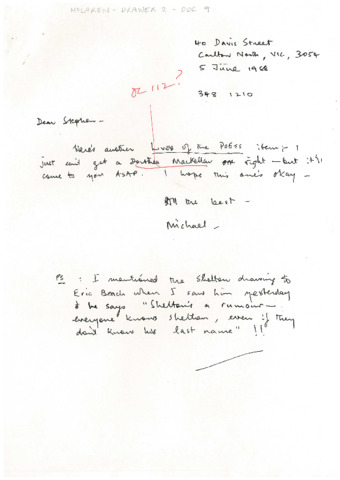 McLAREN - DRAWER 2 - DOC 9
40 Davis Street
Carlton North, VIC, 3054
5 June 1988
348 1210
OR 112?
Dear Stephen -
Here's another Lives of the POETS item; - I
just can't get a Dorothea Mackellar one right - but it'll
come to you ASAP. I hope this one's okay -
All the best -
Michael -
PS : I mentioned the Shelton drawing to
Eric Beach when I saw him yesterday
& he says "Shelton's a rumour -
everyone knows Shelton, even if they
don't know his last name" !!